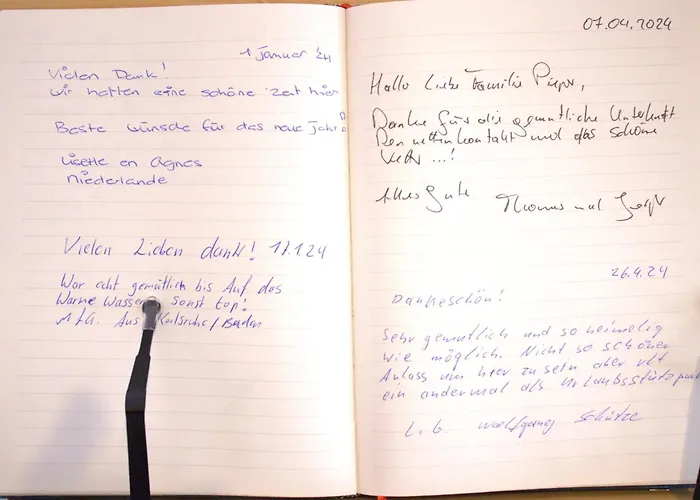 1 Januar '24
Vielen Dank!
wir hatten eine schöne zeit hier
Beste wünsche für das neue Jahr
Lisette en Agnes
Niederlande
Vielen Lieben dank! 17.1.24
War echt gemütlich bis Auf das
Warme Wasser sonst top!
M.f.G. Aus Karlsruhe/Baden
07.04.2024
Hallo Liebe Familie
Danke für die gemütliche Unterkunft
Den netten Kontakt und das schöne
...!
Alles Gute
Thomas und
26.4.24
Dankeschön!
Sehr gemütlich und so heimelig
wie möglich. Nicht so schöner
Anlass um hier zu sein aber vlt
ein andermal als Urlaubsstützpunkt
L.G. Wolfgang Schütze